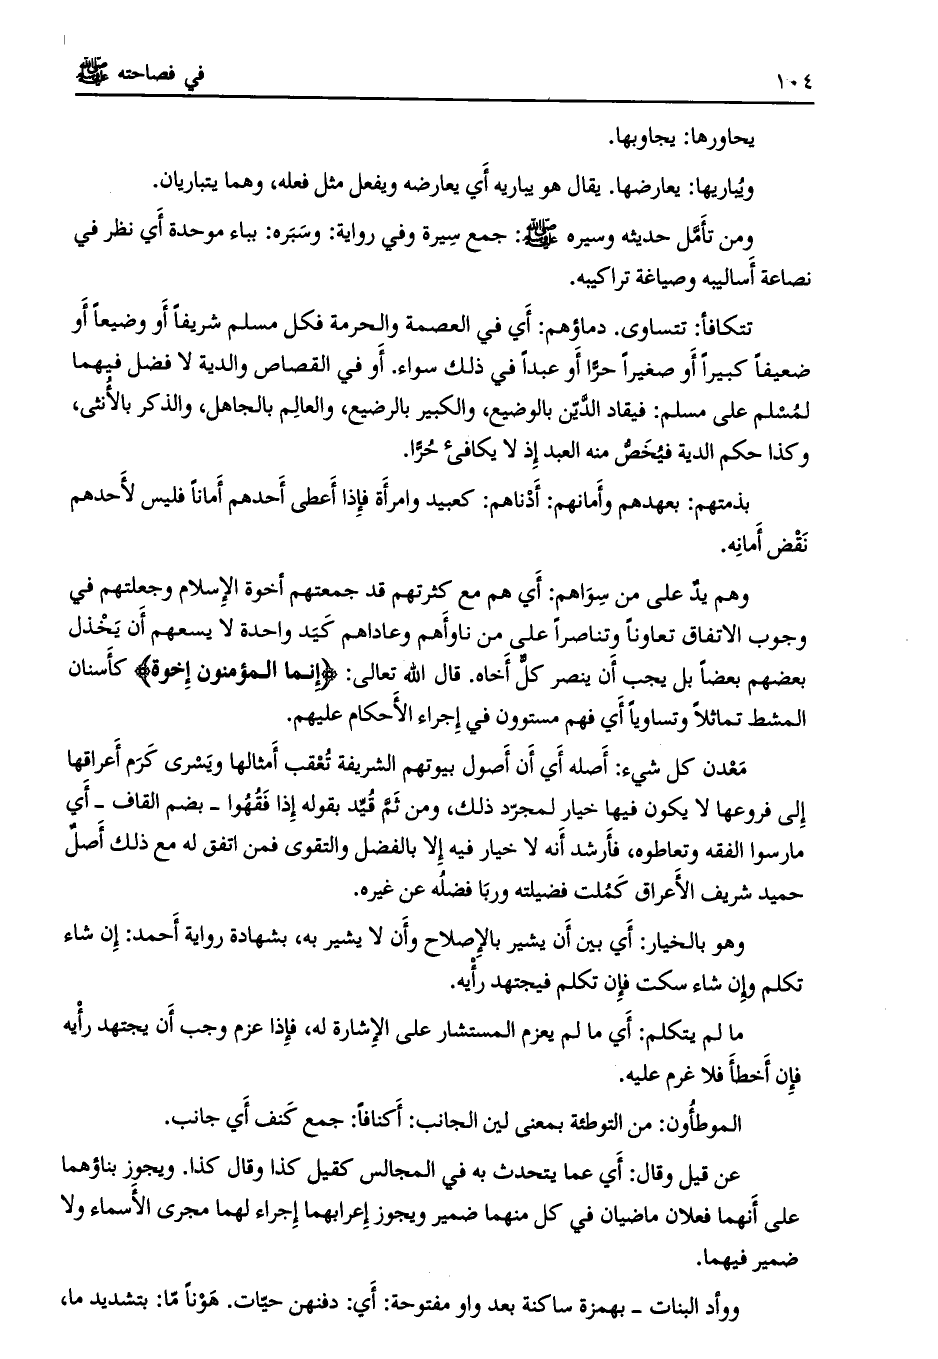 ١٠٤ في فصاحته ﷺ
يحاورها: يجاوبها.
ويُباريها: يعارضها. يقال هو يباريه أَي يعارضه ويفعل مثل فعله، وهما يتباريان.
ومن تأَمَّل حديثه وسيره ﷺ: جمع سِيرة وفي رواية: وسَبَره: بباء موحدة أَي نظر في
نصاعة أَساليبه وصياغة تراكيبه.
تتكافأ: تتساوى. دماؤهم: أَي في العصمة والحرمة فكل مسلم شريفاً أَو وضيعاً أَو
ضعيفاً كبيراً أَو صغيراً حرًّا أَو عبداً في ذلك سواء. أَو في القصاص والدية لا فضل فيهما
لمُسْلم على مسلم: فيقاد الدَّيّن بالوضيع، والكبير بالرضيع، والعالِم بالجاهل، والذكر بالأُنثى،
وكذا حكم الدية فيُخَصُّ منه العبد إِذ لا يكافئ حُرًّا.
بذمتهم: بعهدهم وأَمانهم: أَدْناهم: كعبيد وامرأَة فإِذا أَعطى أَحدهم أَماناً فليس لأَحدهم
نَقْض أَمانِه.
وهم يدٌ على من سِوَاهم: أَي هم مع كثرتهم قد جمعتهم أخوة الإِسلام وجعلتهم في
وجوب الاتفاق تعاوناً وتناصراً على من ناوأَهم وعاداهم كَيَد واحدة لا يسعهم أَن يَخْذل
بعضهم بعضاً بل يجب أَن ينصر كلٌّ أَخاه. قال الله تعالى: ﴿إِنما المؤمنون إِخوة﴾ كأَسنان
المشط تماثلاً وتساوياً أَي فهم مستوون في إِجراء الأَحكام عليهم.
مَعْدن كل شيء: أَصله أَي أَن أَصول بيوتهم الشريفة تُعْقب أَمثالها ويَسْرى كَرَم أَعراقها
إِلى فروعها لا يكون فيها خيار لمجرّد ذلك، ومن ثَمَّ قُيِّد بقوله إِذا فَقُهُوا ــ بضم القاف ــ أَي
مارسوا الفقه وتعاطوه، فأَرشد أَنه لا خيار فيه إِلا بالفضل والتقوى فمن اتفق له مع ذلك أَصلٌ
حميد شريف الأَعراق كَمُلت فضيلته وربَا فضلُه عن غيره.
وهو بالخيار: أَي بين أَن يشير بالإِصلاح وأَن لا يشير به، بشهادة رواية أَحمد: إِن شاء
تكلم وإِن شاء سكت فإِن تكلم فيجتهد رأْيه.
ما لم يتكلم: أَي ما لم يعزم المستشار على الإِشارة له، فإِذا عزم وجب أَن يجتهد رأْيه
فإِن أَخطأَ فلا غرم عليه.
الموطأُون: من التوطئة بمعنى لين الجانب: أَكنافاً: جمع كَنف أَي جانب.
عن قيل وقال: أَي عما يتحدث به في المجالس كقيل كذا وقال كذا. ويجوز بناؤهما
على أَنهما فعلان ماضيان في كل منهما ضمير ويجوز إِعرابهما إِجراء لهما مجرى الأَسماء ولا
ضمير فيهما.
ووأد البنات ــ بهمزة ساكنة بعد واو مفتوحة: أَي: دفنهن حيّات. هَوْناً مّا: بتشديد ما،